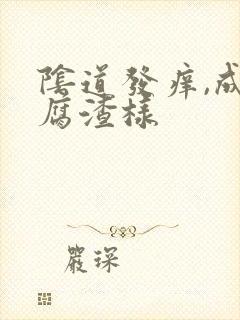 陰道發痒,成
腐渣樣
嚴琛